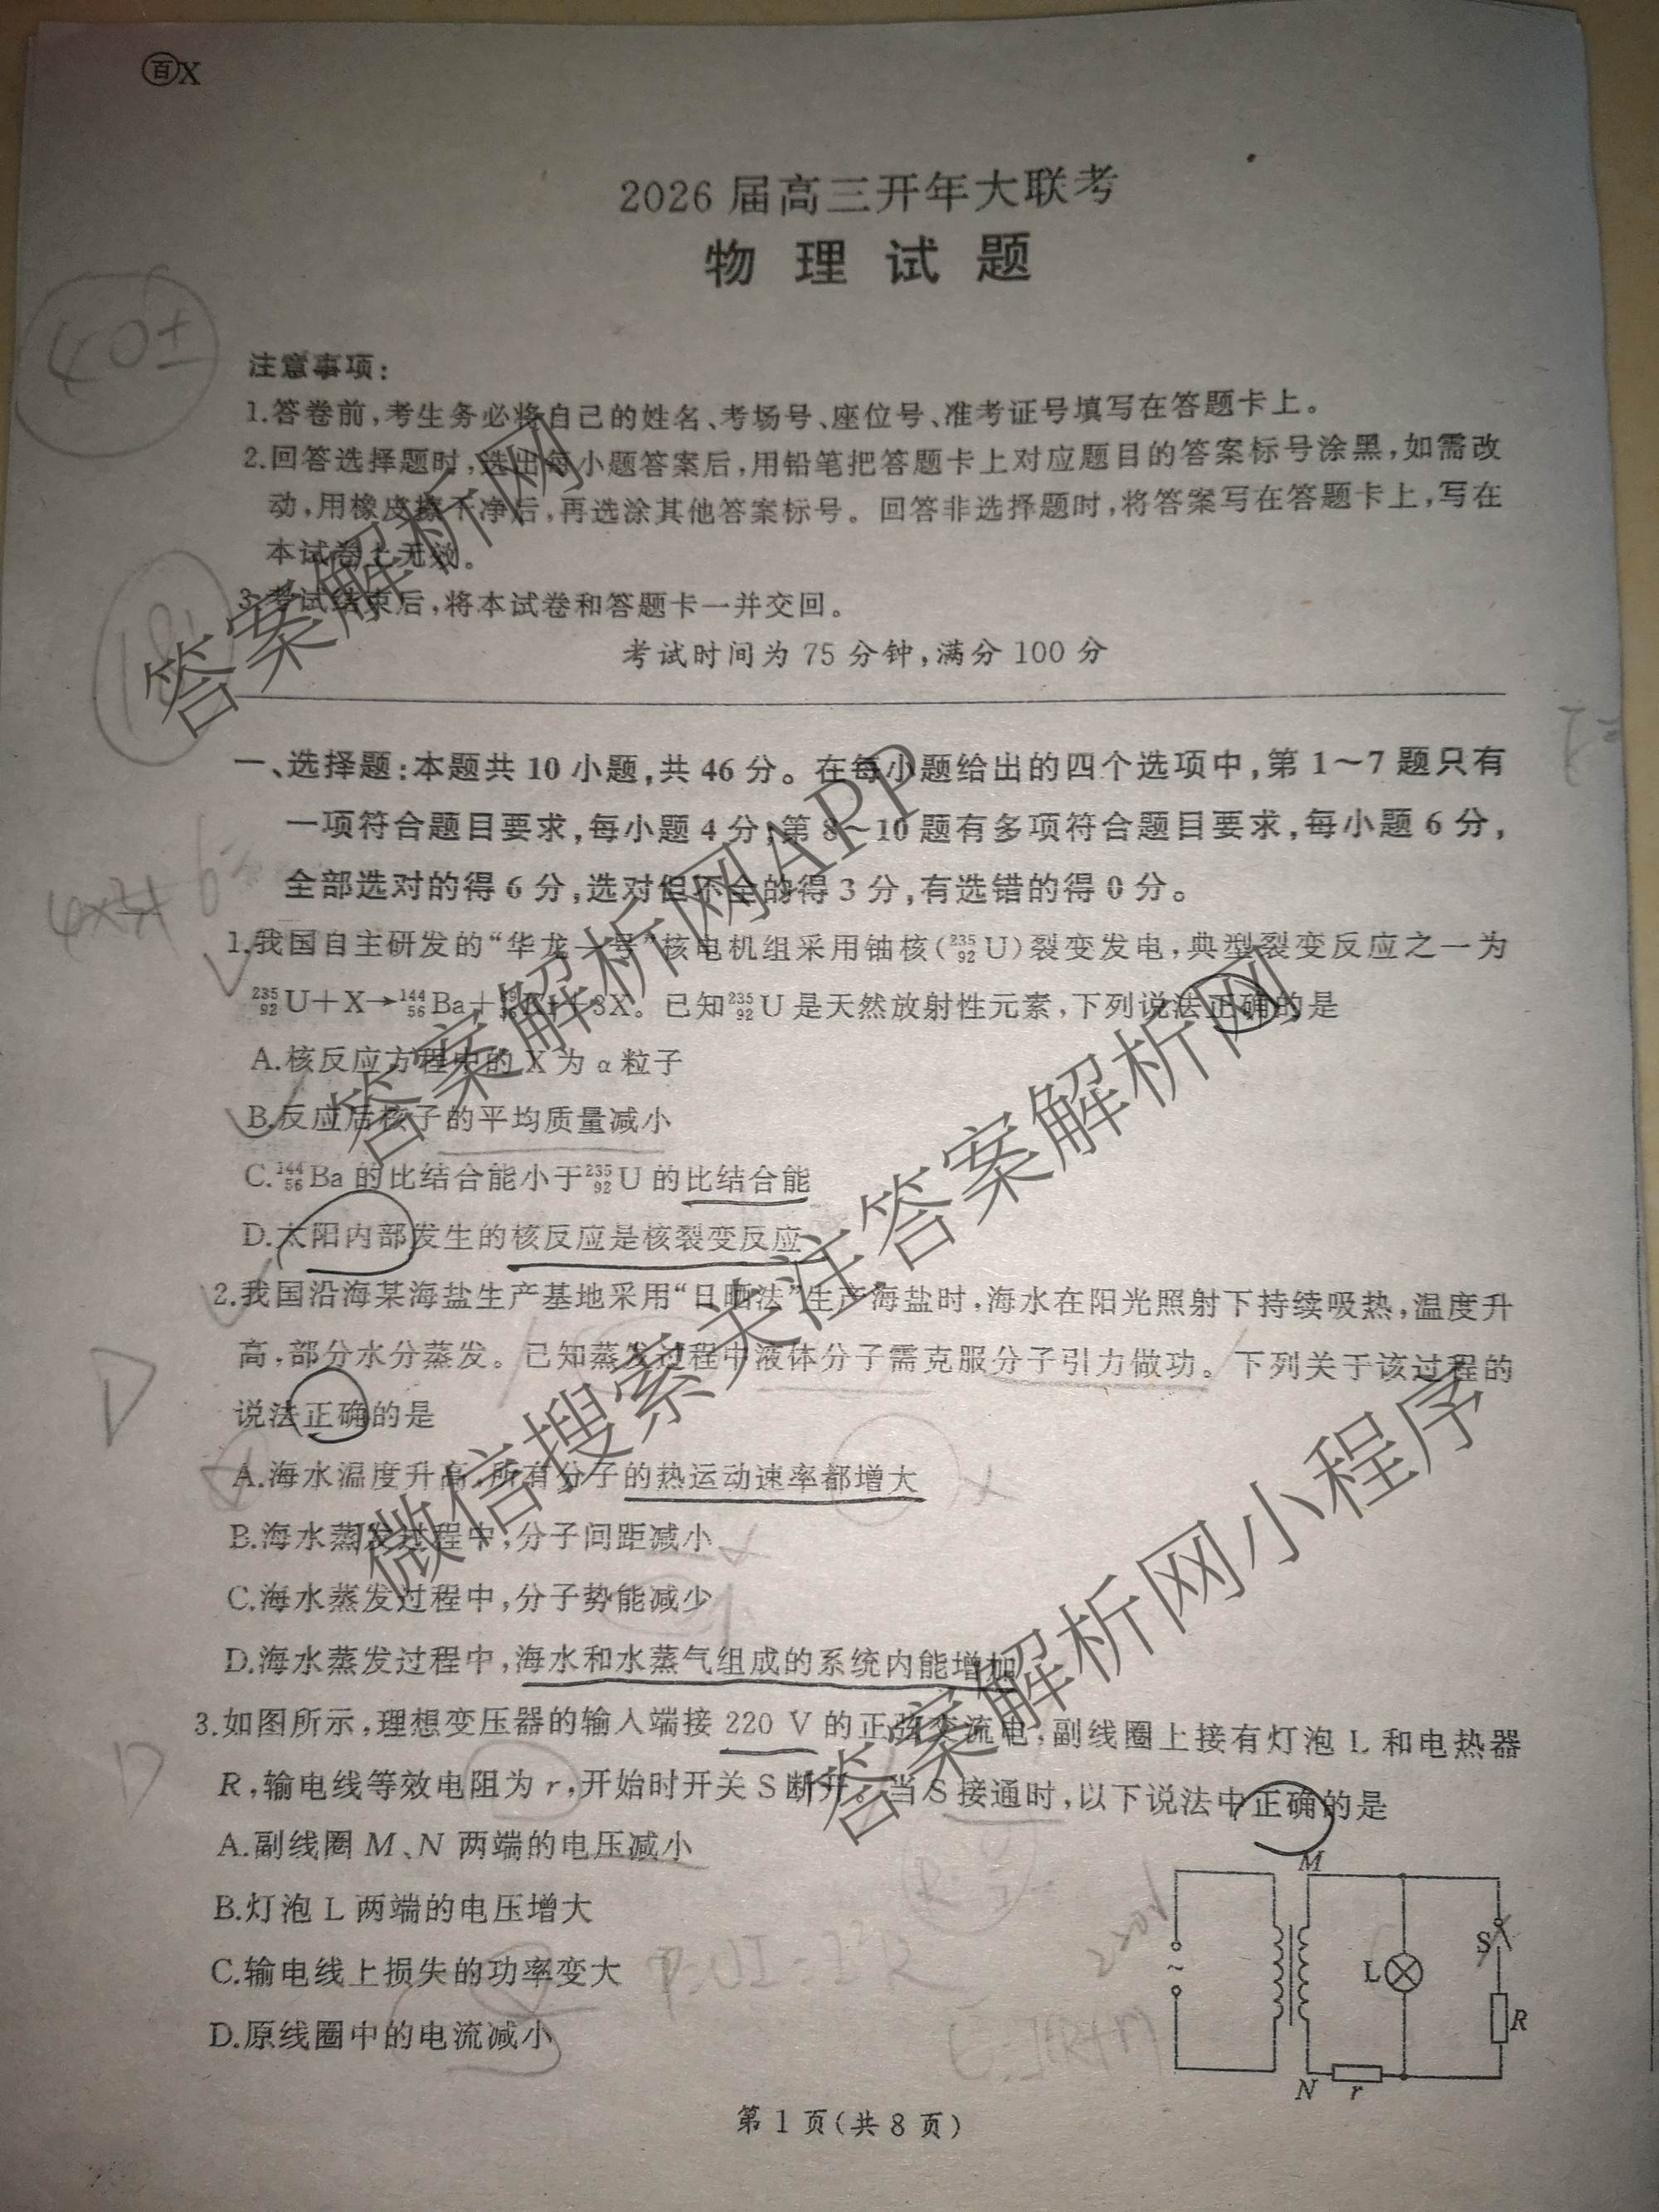 百X
2026届高三开年大联考
物理试题
40±
注意事项:
1.答卷前,考生务必将自己的姓名、考场号、座位号、准考证号填写在答题卡上。
2.回答选择题时,选出每小题答案后,用铅笔把答题卡上对应题目的答案标号涂黑,如需改
动,用橡皮擦干净后,再选涂其他答案标号。回答非选择题时,将答案写在答题卡上,写在
本试卷上无效。
3.考试结束后,将本试卷和答题卡一并交回。
考试时间为75分钟,满分100分
一、选择题:本题共10小题,共46分。在每小题给出的四个选项中,第1~7题只有
一项符合题目要求,每小题4分;第8~10题有多项符合题目要求,每小题6分,
全部选对的得6分,选对但不全的得3分,有选错的得0分。
1.我国自主研发的“华龙一号”核电机组采用铀核(²³⁵₉₂U)裂变发电,典型裂变反应之一为
²³⁵₉₂U+X→¹⁴⁴₅₆Ba+⁸⁹₃₆Kr+3X。已知²³⁵₉₂U是天然放射性元素,下列说法正确的是
A.核反应方程中的X为α粒子
B.反应后核子的平均质量减小
C.¹⁴⁴₅₆Ba的比结合能小于²³⁵₉₂U的比结合能
D.太阳内部发生的核反应是核裂变反应
2.我国沿海某海盐生产基地采用“日晒法”生产海盐时,海水在阳光照射下持续吸热,温度升
高,部分水分蒸发。已知蒸发过程中液体分子需克服分子引力做功。下列关于该过程的
说法正确的是
D
A.海水温度升高,所有分子的热运动速率都增大
B.海水蒸发过程中,分子间距减小
C.海水蒸发过程中,分子势能减少
D.海水蒸发过程中,海水和水蒸气组成的系统内能增加
3.如图所示,理想变压器的输入端接220 V的正弦交流电,副线圈上接有灯泡L和电热器
R,输电线等效电阻为r,开始时开关S断开。当S接通时,以下说法中正确的是
D
A.副线圈M、N两端的电压减小
B.灯泡L两端的电压增大
C.输电线上损失的功率变大
D.原线圈中的电流减小
220V
M
~
L
S
R
N
r
第1页(共8页)
答案解析网
答案解析网APP
微信搜索关注答案解析网
答案解析网小程序